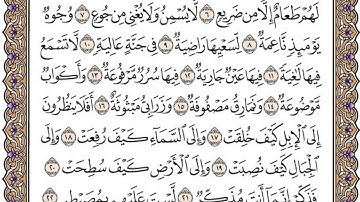 لَّيْسَ لَهُمْ طَعَامٌ إِلَّا مِن ضَرِيعٍ ٦ لَّا يُسْمِنُ وَلَا يُغْنِي مِن جُوعٍ ٧ وُجُوهٌ
يَوْمَئِذٍ نَّاعِمَةٌ ٨ لِّسَعْيِهَا رَاضِيَةٌ ٩ فِي جَنَّةٍ عَالِيَةٍ ١٠ لَّا تَسْمَعُ
فِيهَا لَٰغِيَةً ١١ فِيهَا عَيْنٌ جَارِيَةٌ ١٢ فِيهَا سُرُرٌ مَّرْفُوعَةٌ ١٣ وَأَكْوَابٌ
مَّوْضُوعَةٌ ١٤ وَنَمَارِقُ مَصْفُوفَةٌ ١٥ وَزَرَابِيُّ مَبْثُوثَةٌ ١٦ أَفَلَا يَنظُرُونَ
إِلَى الْإِبِلِ كَيْفَ خُلِقَتْ ١٧ وَإِلَى السَّمَاءِ كَيْفَ رُفِعَتْ ١٨ وَإِلَى
الْجِبَالِ كَيْفَ نُصِبَتْ ١٩ وَإِلَى الْأَرْضِ كَيْفَ سُطِحَتْ ٢٠
فَذَكِّرْ إِنَّمَا أَنتَ مُذَكِّرٌ ٢١ لَّسْتَ عَلَيْهِم بِمُصَيْطِرٍ ٢٢